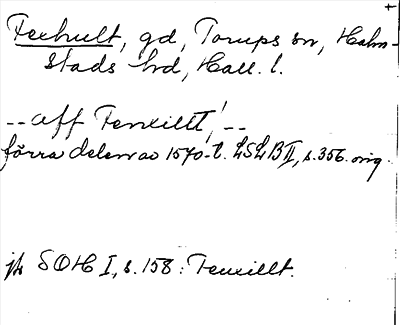 Fexhult, gd, Torups sn, Halm-
stads hd, Hall. l.
-- aff Fenxillt, --
förra delen av 1570-t. LSLB II, s. 356. orig.
jfr SOH I, s. 158: Fenxillt.